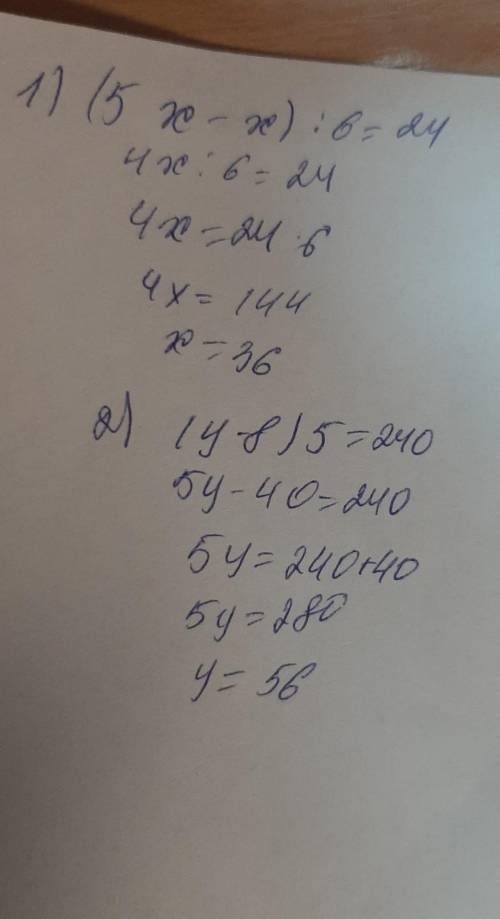 1) (5 x - x) : 6 = 24
4x : 6 = 24
4x = 24 · 6
4x = 144
x = 36
2) (y - 8) 5 = 240
5y - 40 = 240
5y = 240 + 40
5y = 280
y = 56